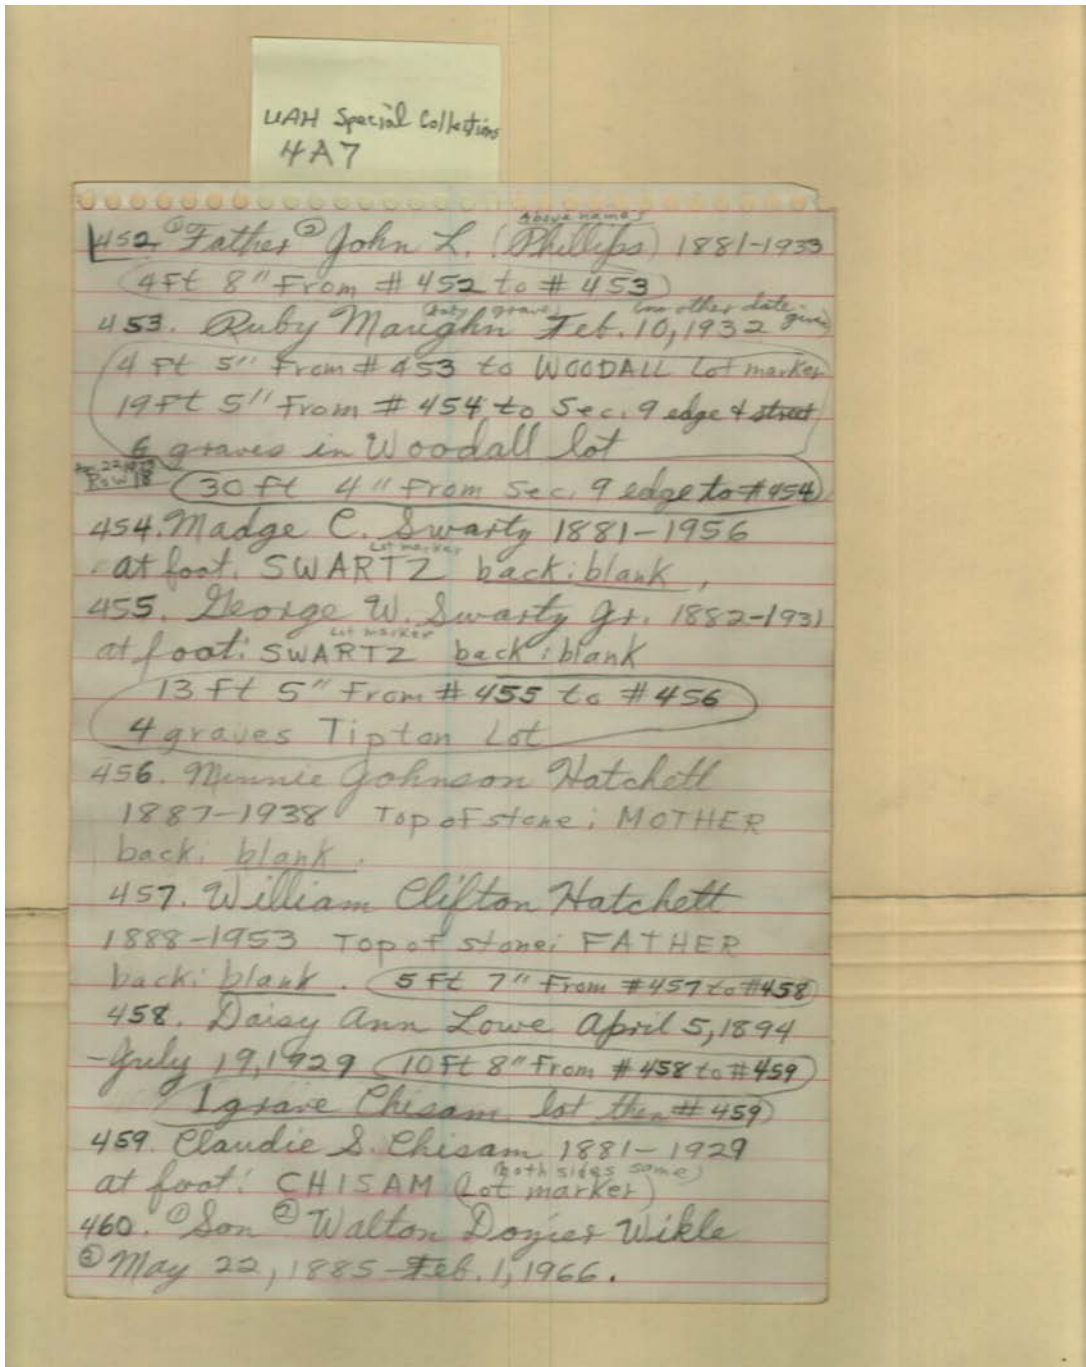 UAH Special Collections
4A7
Above names
452. ① Father ② John L. (Phillips) 1881-1933
4 Ft 8" From # 452 to # 453
(baby grave) (no other date given)
453. Ruby Maughn Feb. 10, 1932
4 Ft 5" From # 453 to WOODALL Lot marker
19 Ft 5" From # 454 to Sec. 9 edge & street
6 graves in Woodall lot
Row 18
30 ft 4" From Sec. 9 edge to # 454
454. Madge C. Swartz 1881-1956
Lot marker
at foot: SWARTZ back: blank,
455. George W. Swartz Jr. 1882-1931
Lot marker
at foot: SWARTZ back: blank
13 Ft 5" From # 455 to # 456
4 graves Tipton Lot
456. Minnie Johnson Hatchett
1887-1938 Top of stone: MOTHER
back: blank.
457. William Clifton Hatchett
1888-1953 Top of stone: FATHER
back: blank. 5 Ft 7" From #457 to #458
458. Daisy Ann Lowe April 5, 1894
-July 19, 1929 10 Ft 8" From # 458 to # 459
1 grave Chisam lot then # 459
459. Claudie S. Chisam 1881-1929
(both sides same)
at foot: CHISAM (Lot marker)
460. ① Son ② Walton Dozier Wikle
③ May 22, 1885-Feb. 1, 1966.